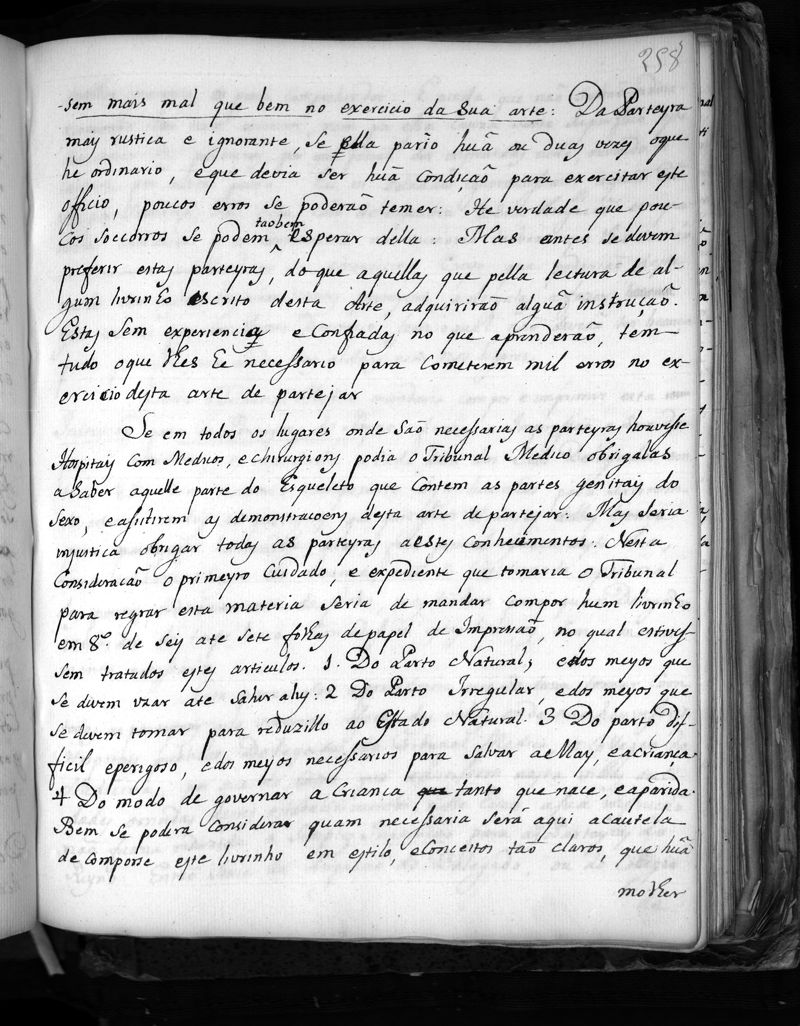 258
-sem mais mal que bem no exercicio da Sua arte: Da Parteyra
may rustica e ignorante, se ella pario huã ou duas vezes oque
he ordinario, e que devia ser huã Condiçaõ para exercitar este
officio, poucos erros se poderaõ temer: He verdade que pou-
taobem
cos soccorros se podem esperar della: Mas antes se devem
preferir estas parteyras, do que aquellas que pella lectura de al-
gum livrinho escrito desta Arte, adquiriraõ alguã instruçaõ.
Estas sem experiencia e Confiadas no que aprenderaõ, tem
tudo oque lhes he necessario para Cometerem mil erros no ex-
ercicio desta arte de partejar
Se em todos os lugares onde saõ necessarias as parteyras houvesse
Hospitays Com Medicos, e chirurgions podia o Tribunal Medico obrigalas
a Saber aquelle parte do Esqueleto que Contem as partes genitais do
Sexo, e assistirem as demonstracoens desta arte de partejar: Mas Seria
injustica obrigar todas as parteyras a estes Conhecimentos. Nesta
Consideracaõ o primeyro Cuidado, e expediente que tomaria o Tribunal
para regrar esta materia seria de mandar compor hum livrinho
em 8º. de seis ate sete folhas de papel de Impressaõ, no qual estives-
sem tratados estes articulos. 1. Do Parto Natural; e dos meyos que
se devem uzar ate Sahir a luz: 2 Do Parto Irregular, e dos meyos que
se devem tomar para reduzillo ao Estado Natural. 3 Do parto dif-
ficil e perigoso, e dos meyos necessarios para Salvar a May, e a crianca.
4 Do modo de governar a Crianca que tanto que nace, e a parida.
Bem se podera Considerar quam necessaria será aqui a Cautela
de compore este livrinho em estilo, e Conceitos taõ claros, que huã
molher